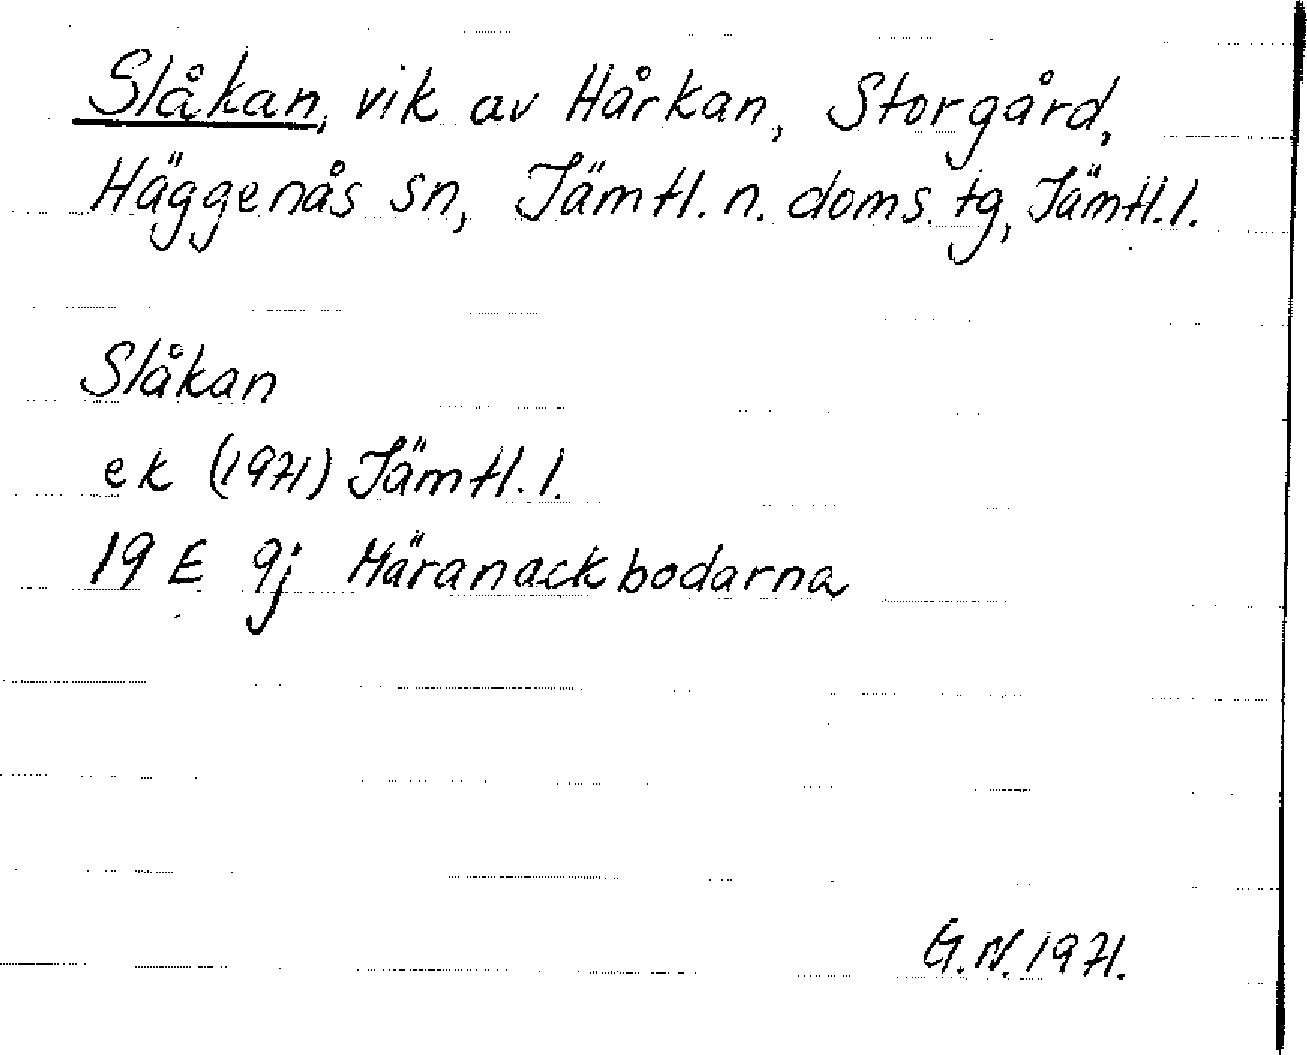 Slåkan, vik av Hårkan, Storgård,
Häggenås sn, Jämtl. n. doms. tg, Jämtl. l.
Slåkan
ek (1971) Jämtl. l.
19 E 9j Häranackbodarna
G.N. 1971.